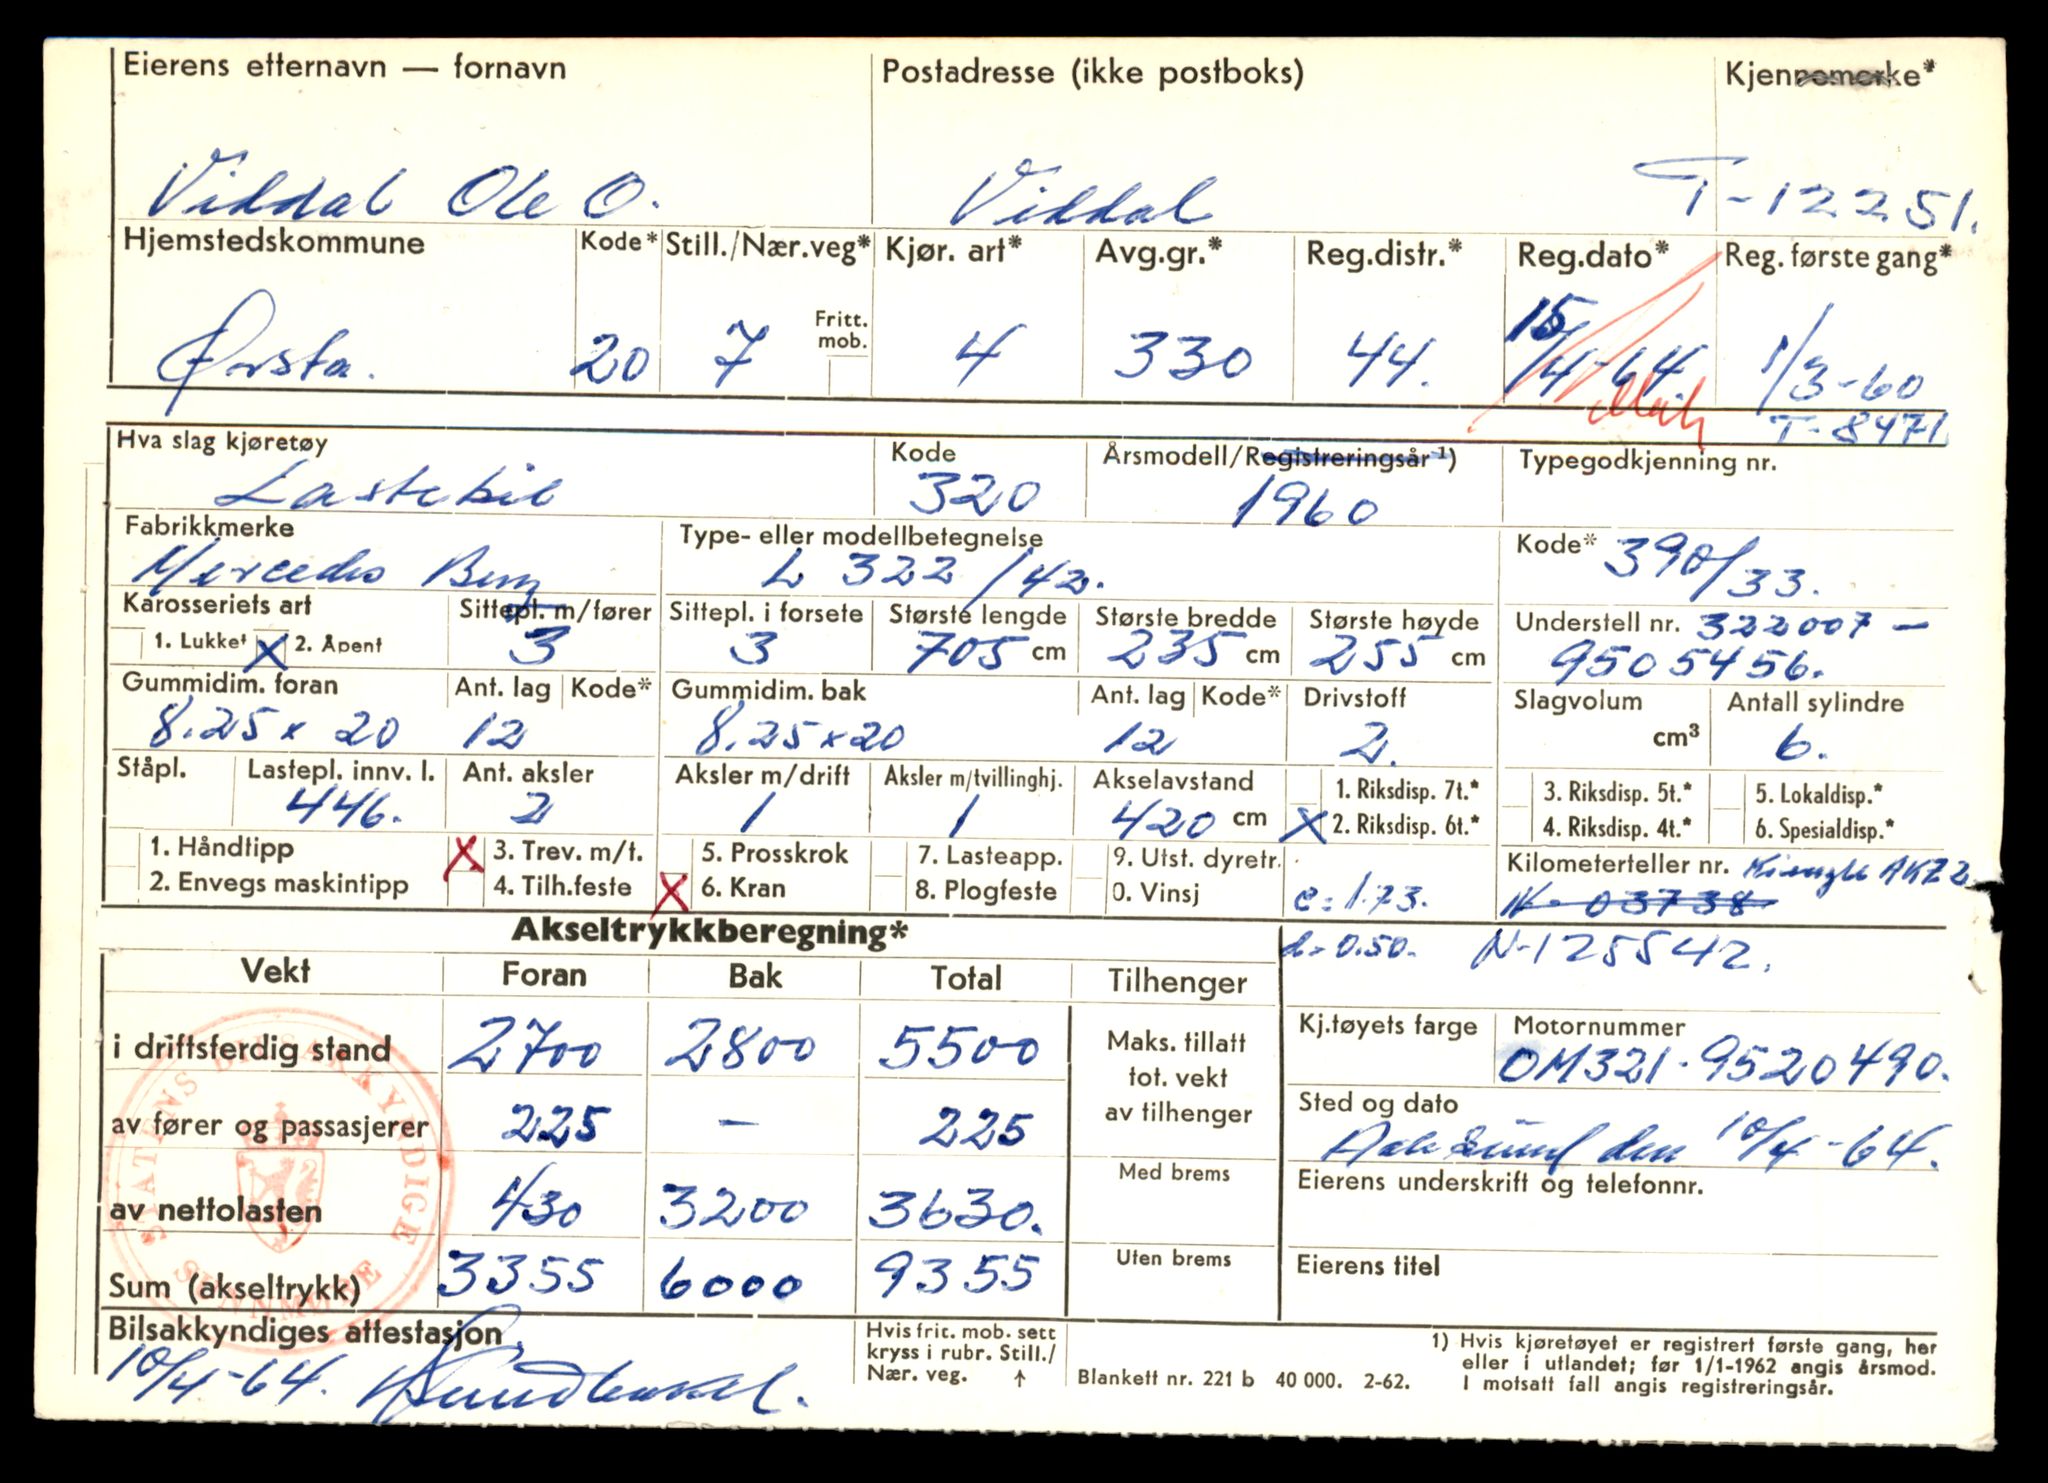 Eierens etternavn — fornavn Postadresse (ikke postboks) Kjennemerke*
Viddal Ole O. Viddal T-12251.
Hjemstedskommune Kode* Still./Nær.veg* Kjør. art* Avg.gr.* Reg.distr.* Reg.dato* Reg. første gang*
Fritt. mob.
Ørsta. 20 7 4 330 44. 15/4-64. 1/3-60
T-8471
Hva slag kjøretøy Kode Årsmodell/Registreringsår 1) Typegodkjenning nr.
Lastebil 320 1960
Fabrikkmerke Type- eller modellbetegnelse Kode* 390/33.
Mercedes Benz L 322/42.
Karosseriets art Sittepl. m/fører Sittepl. i forsete Største lengde Største bredde Største høyde Understell nr. 322007-
1. Lukket X 2. Åpent 3 3 705 cm 235 cm 255 cm 9505456.
Gummidim. foran Ant. lag Kode* Gummidim. bak Ant. lag Kode* Drivstoff Slagvolum Antall sylindre
8.25 x 20 12 8.25 x 20 12 2. cm³ 6.
Ståpl. Lastepl. innv. l. Ant. aksler Aksler m/drift Aksler m/tvillinghj. Akselavstand 1. Riksdisp. 7t.* 3. Riksdisp. 5t.* 5. Lokaldisp.*
446. 2 1 1 420 cm X 2. Riksdisp. 6t.* 4. Riksdisp. 4t.* 6. Spesialdisp.*
1. Håndtipp X 3. Trev. m/t. 5. Prosskrok 7. Lasteapp. 9. Utst. dyretr. Kilometerteller nr. Kienzle AKZ2
2. Envegs maskintipp 4. Tilh.feste X 6. Kran 8. Plogfeste 0. Vinsj c = 1.73. N-03738
Akseltrykkberegning* d = 0.50. N-125542.
Vekt Foran Bak Total Tilhenger
Kj.tøyets farge Motornummer
i driftsferdig stand 2700 2800 5500 Maks. tillatt tot. vekt av tilhenger OM321-9520490.
Sted og dato
av fører og passasjerer 225 — 225 Aalesund den 10/4-64.
Med brems Eierens underskrift og telefonnr.
av nettolasten 430 3200 3630.
Uten brems Eierens titel
Sum (akseltrykk) 3355 6000 9355
STATENS BILSAKKYNDIGE SUNNMØRE
Bilsakkyndiges attestasjon
10/4-64.
Hvis frit. mob. sett
kryss i rubr. Still./
Nær. veg. ↑
Blankett nr. 221 b 40 000. 2-62.
1) Hvis kjøretøyet er registrert første gang, her
eller i utlandet; før 1/1-1962 angis årsmod.
I motsatt fall angis registreringsår.